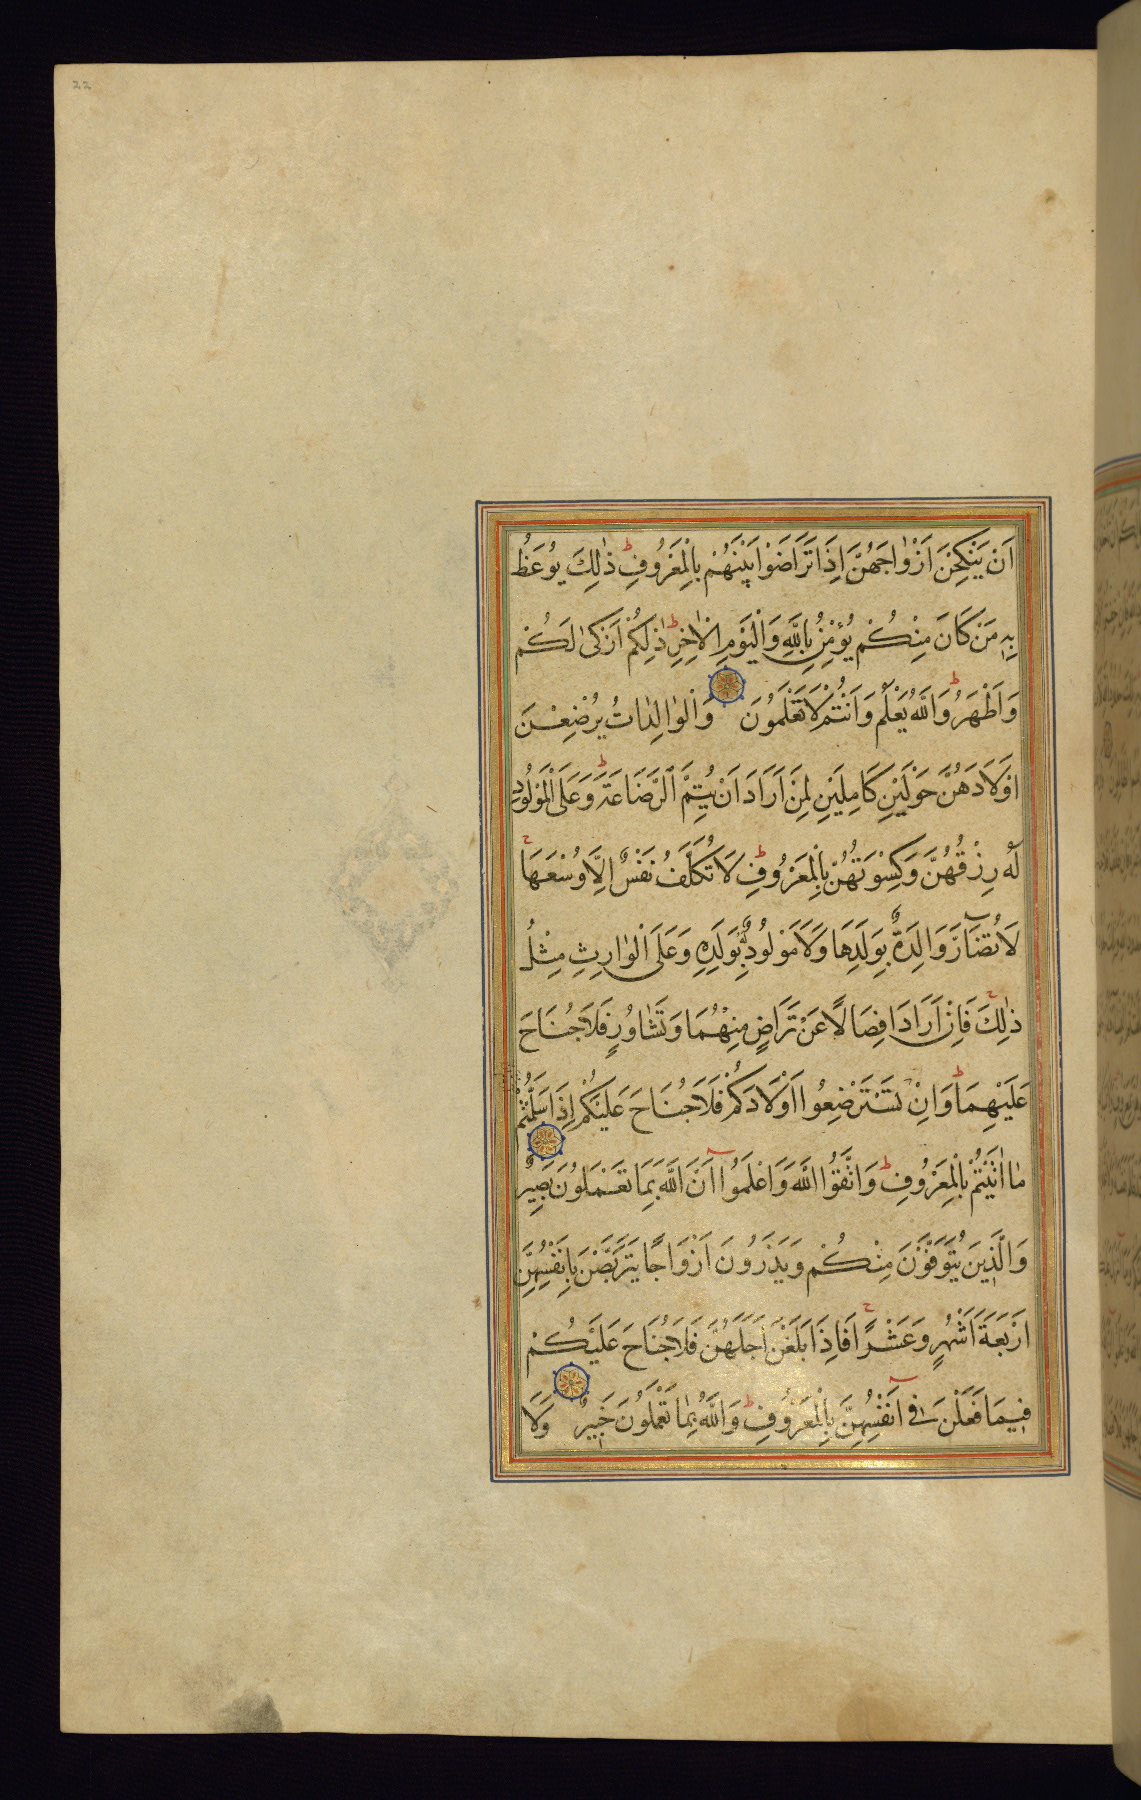 22
اَنْ يَنْكِحْنَ اَزْوٰاجَهُنَّ اِذَا تَرَاضَوْا بَيْنَهُمْ بِالْمَعْرُوفِ ط ذٰلِكَ يُوعَظُ
بِهٖ مَنْ كَانَ مِنْكُمْ يُؤْمِنُ بِاللّٰهِ وَالْيَوْمِ الْاٰخِرِ ط ذٰلِكُمْ اَزْكىٰ لَكُمْ
وَاَطْهَرُ ط وَاللّٰهُ يَعْلَمُ وَاَنْتُمْ لَا تَعْلَمُونَ وَالْوٰالِدٰاتُ يُرْضِعْنَ
اَوْلَادَهُنَّ حَوْلَيْنِ كَامِلَيْنِ لِمَنْ اَرَادَ اَنْ يُتِمَّ الرَّضَاعَةَ ط وَعَلَى الْمَوْلُودِ
لَهُ رِزْقُهُنَّ وَكِسْوَتُهُنَّ بِالْمَعْرُوفِ ط لَا تُكَلَّفُ نَفْسٌ اِلَّا وُسْعَهَا ج
لَا تُضَآرَّ وَالِدَةٌ بِوَلَدِهَا وَلَا مَوْلُودٌ لَهُ بِوَلَدِهِ وَعَلَى الْوٰارِثِ مِثْلُ
ذٰلِكَ ج فَاِنْ اَرَادَا فِصَالًا عَنْ تَرَاضٍ مِنْهُمَا وَتَشٰاوُرٍ فَلَا جُنَاحَ
عَلَيْهِمَا ط وَاِنْ اَرَدْتُمْ اَنْ تَسْتَرْضِعُوا اَوْلَادَكُمْ فَلَا جُنَاحَ عَلَيْكُمْ اِذَا سَلَّمْتُمْ
مٰا اٰتَيْتُمْ بِالْمَعْرُوفِ ط وَاتَّقُوا اللّٰهَ وَاعْلَمُوٓا اَنَّ اللّٰهَ بِمَا تَعْمَلُونَ بَصِيرٌ
وَالَّذِينَ يُتَوَفَّوْنَ مِنْكُمْ وَيَذَرُونَ اَزْوَاجًا يَتَرَبَّصْنَ بِاَنْفُسِهِنَّ
اَرْبَعَةَ اَشْهُرٍ وَعَشْرًا ج فَاِذَا بَلَغْنَ اَجَلَهُنَّ فَلَا جُنَاحَ عَلَيْكُمْ
فِيمَا فَعَلْنَ فِىٓ اَنْفُسِهِنَّ بِالْمَعْرُوفِ ط وَاللّٰهُ بِمٰا تَعْمَلُونَ خَبِيرٌ وَلَا